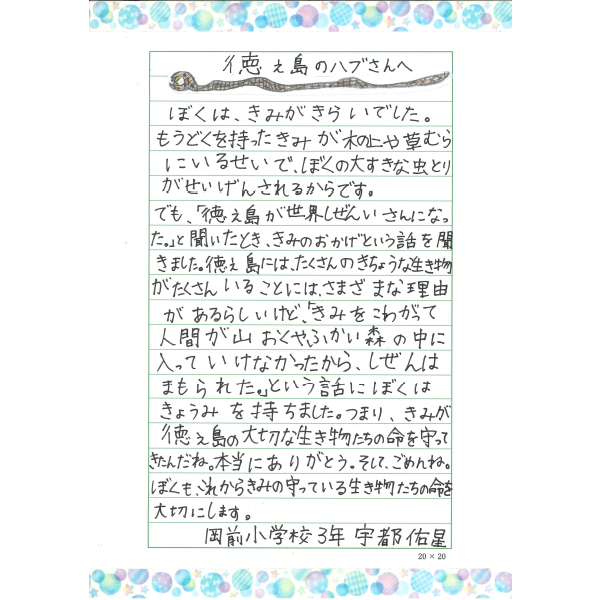 徳之島のハブさんへ
ぼくは、きみがきらいでした。
もうどくを持ったきみが木の上や草むら
にいるせいで、ぼくの大すきな虫とり
がせいげんされるからです。
でも、「徳之島が世界しぜんいさんになっ
た。」と聞いたとき、きみのおかげという話を聞
きました。徳之島には、たくさんのきちょうな生き物
がたくさんいることには、さまざまな理由
があるらしいけど、「きみをこわがって
人間が山おくや、ふかい森の中に
入っていけなかったから、しぜんは
まもられた。」という話にぼくは
きょうみを持ちました。つまり、きみが
徳之島の大切な生き物たちの命を守って
きたんだね。本当にありがとう。そして、ごめんね。
ぼくも、これからきみの守っている生き物たちの命を
大切にします。
岡前小学校3年 宇都佑星
20×20